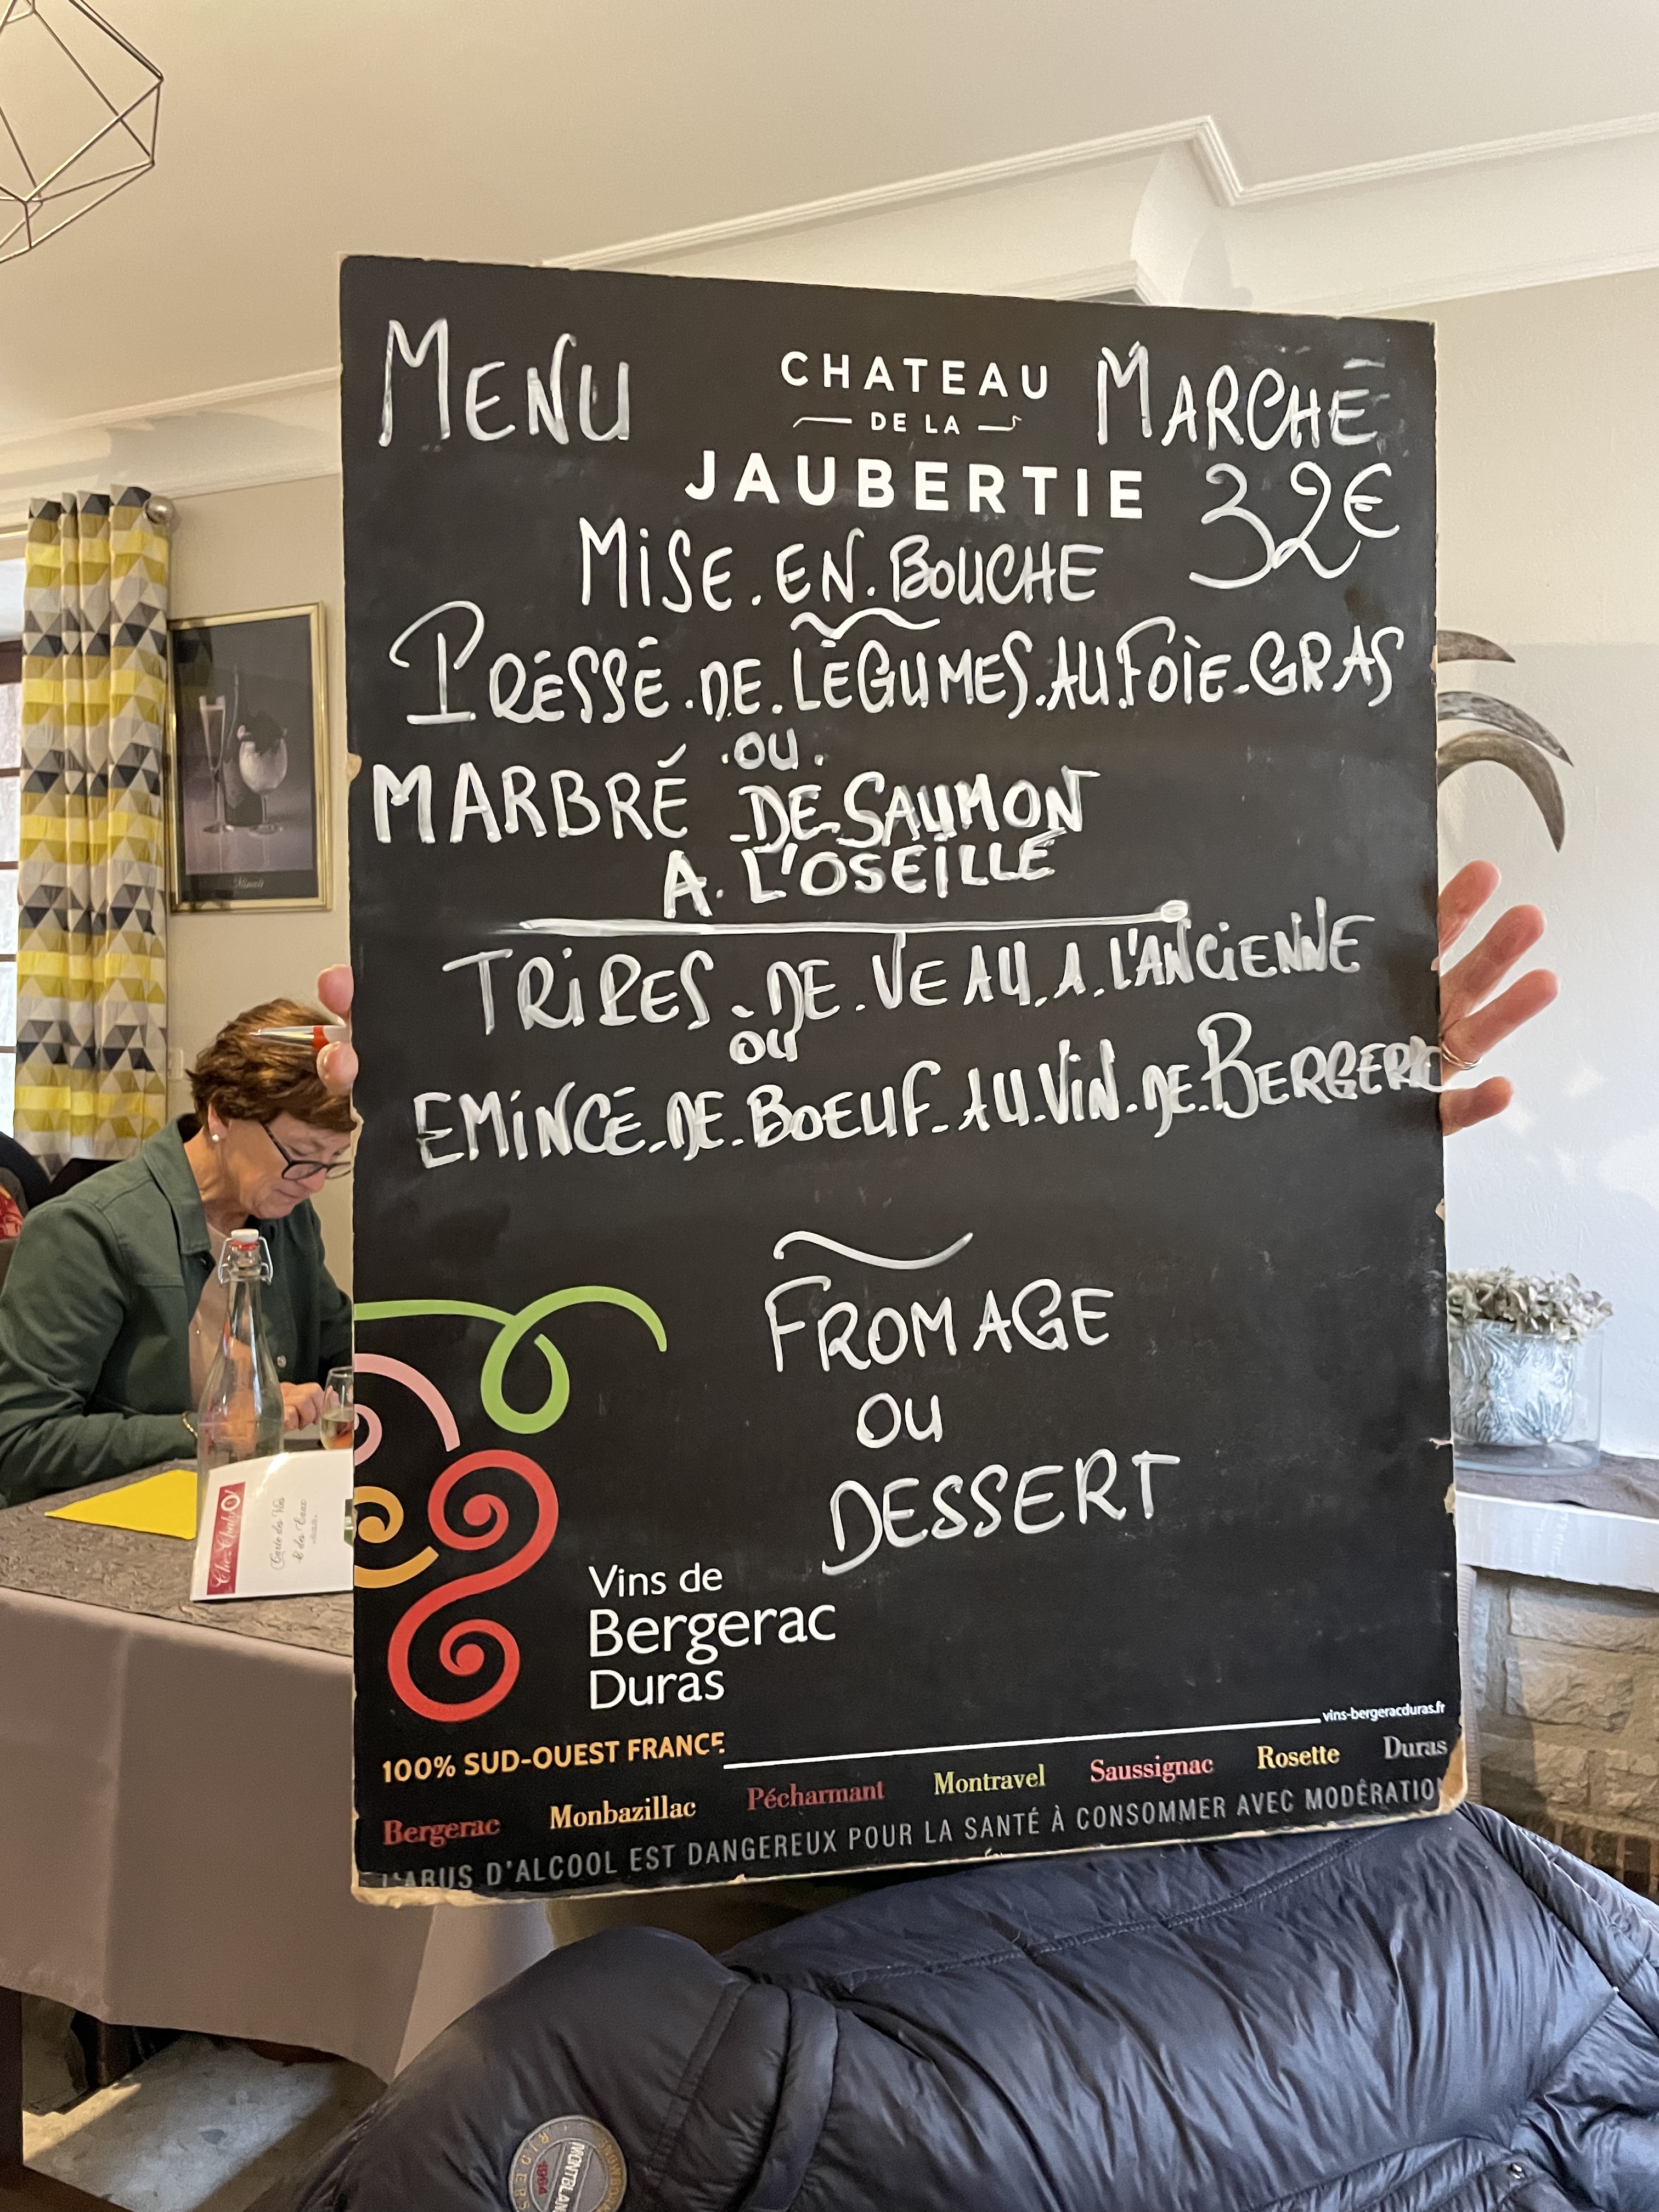 MENU
CHATEAU
DE LA
JAUBERTIE
MARCHÉ
32€
MISE.EN.BOUCHE
PRÉSSÉ.DE.LÉGUMES.AU.FOIE-GRAS
.OU.
MARBRÉ DE SAUMON
A. L'OSEILLE
TRIPES.DE.VEAU.A.L'ANCIENNE
OU
EMINCÉ.DE.BOEUF.AU.VIN.DE.BERGERAC
FROMAGE
OU
DESSERT
Vins de
Bergerac
Duras
100% SUD-OUEST FRANCE
vins-bergeracduras.fr
Bergerac Monbazillac Pécharmant Montravel Saussignac Rosette Duras
L'ABUS D'ALCOOL EST DANGEREUX POUR LA SANTÉ À CONSOMMER AVEC MODÉRATION
Carte des Vins
& des Eaux
MONTBLANC